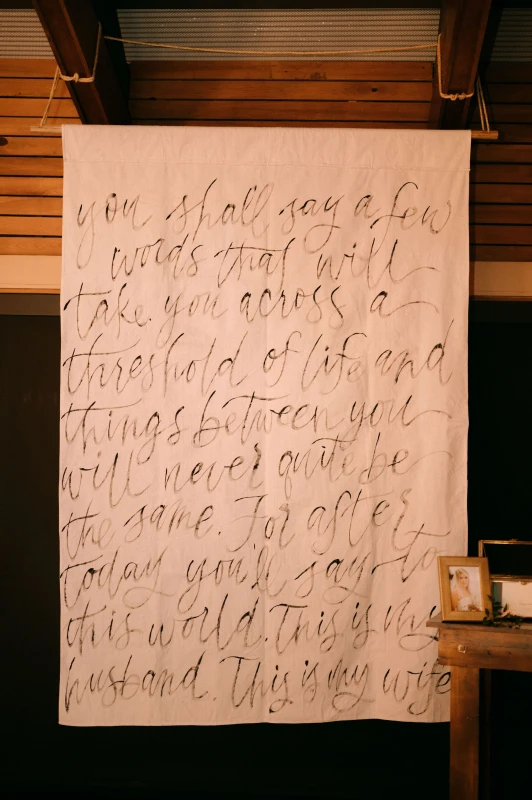 you shall say a few
words that will
take you across a
threshold of life and
things between you
will never quite be
the same. For after
today you'll say to
this world. This is my
husband. This is my wife